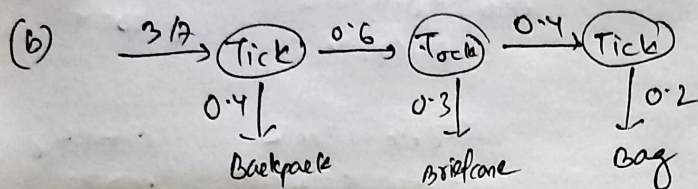 (b) 3/7 Tick 0.6 Tock 0.4 Tick
0.4 0.3 0.2
Backpack Briefcase Bag